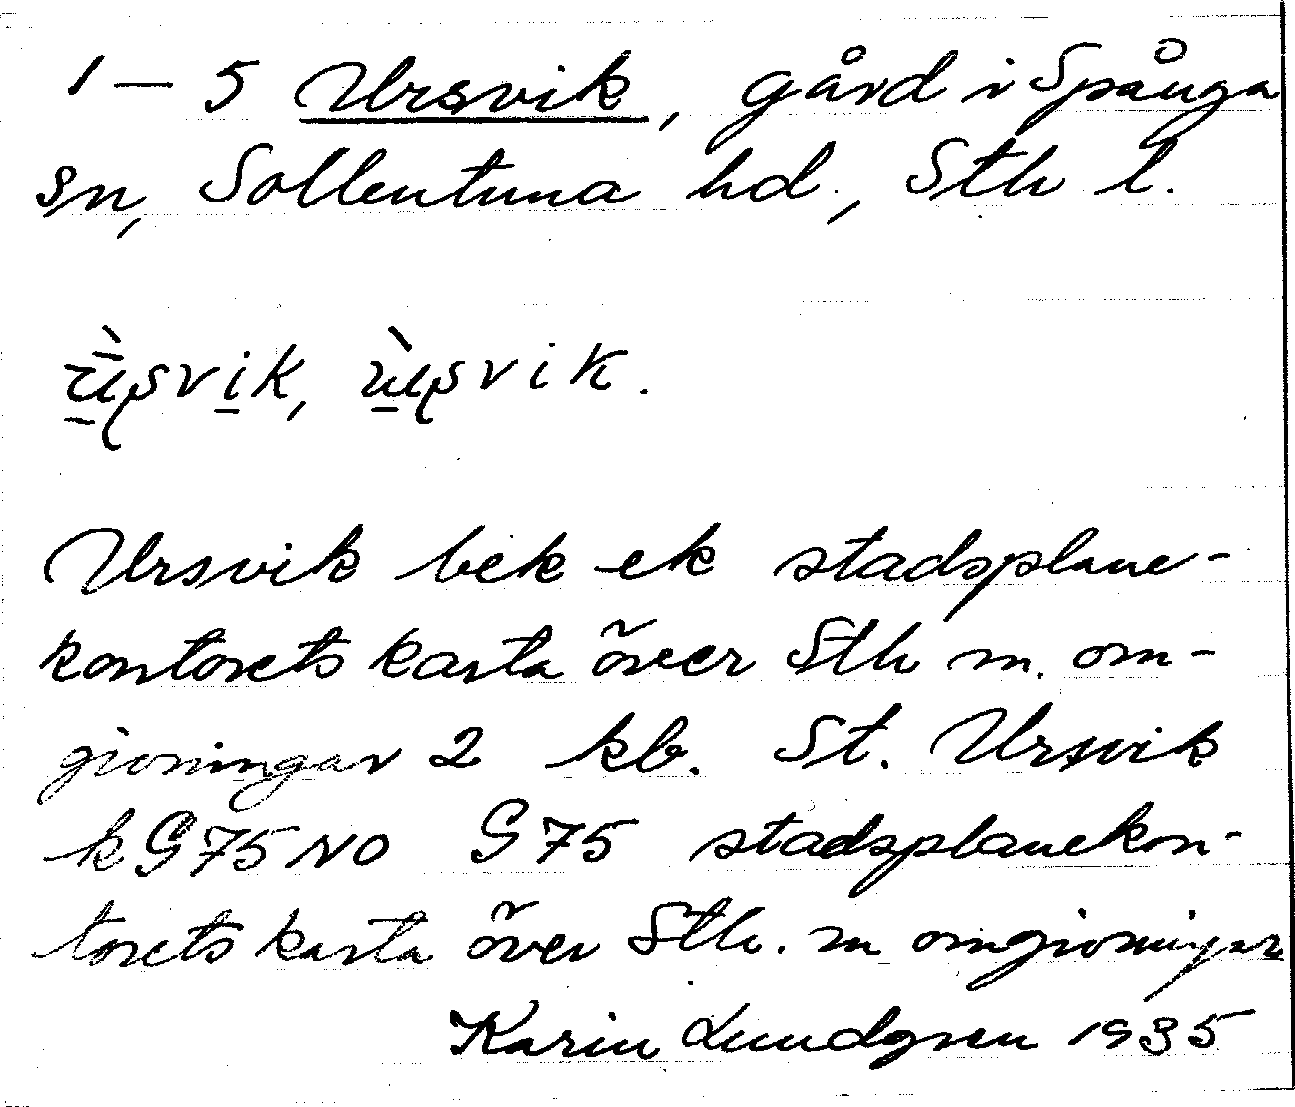 1 – 5 Ursvik, gård i Spånga
sn, Sollentuna hd., Sth l.
Ursvik bek ek stadsplane-
kontorets karta över Sth m. om-
givningar 2 kb. St. Ursvik
k G75 NO G 75 stadsplanekon-
torets karta över Sth. m omgivningar
Karin Lundgren 1935